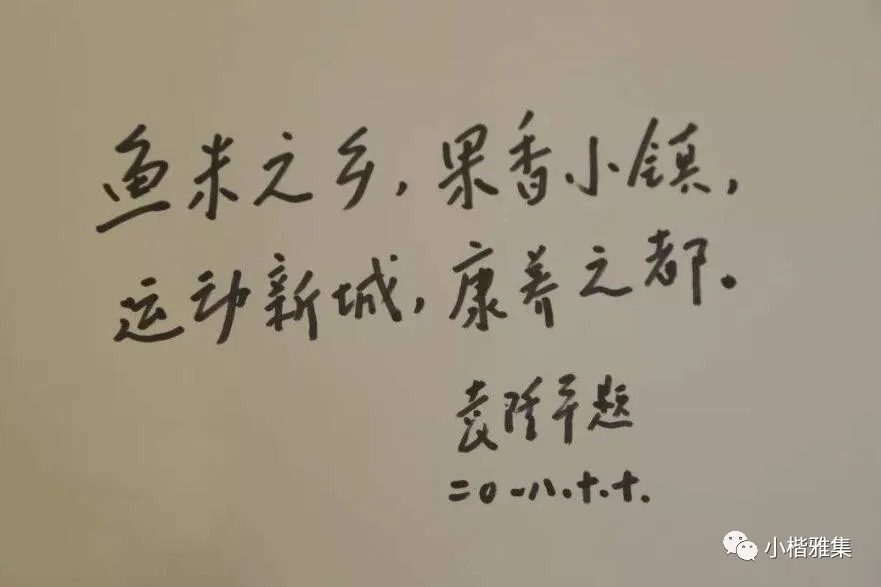 鱼米之乡，果香小镇，
运动新城，康养之都。
袁隆平题
二〇一八.十.十.
小楷雅集